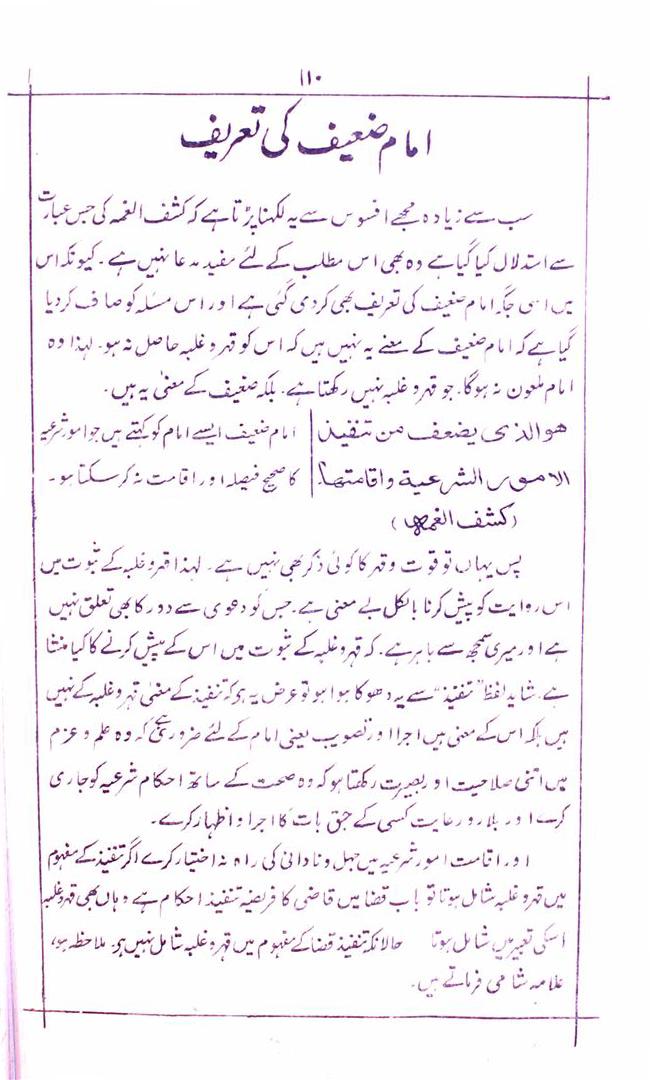 ۱۱۰
امام ضعیف کی تعریف
سب سے زیادہ مجھے افسوس سے یہ لکہنا پڑتا ہے کہ کشف الغمہ کی جس عبارت
سے استدلال کیا گیا ہے وہ بھی اس مطلب کے لئے مفید مدعا نہیں ہے ۔ کیونکہ اس
میں اسی جگہ امام ضعیف کی تعریف بھی کردی گئی ہے اور اس مسئلہ کو صاف کر دیا
گیا ہے کہ امام ضعیف کے معنے یہ نہیں ہیں کہ اس کو قہر و غلبہ حاصل نہ ہو ۔ لہذا وہ
امام ملعون نہ ہوگا ۔ جو قہر و غلبہ نہیں رکھتا ہے ۔ بلکہ ضعیف کے معنیٰ یہ ہیں ۔
هو الذی یضعف من تنفیذ | امام ضعیف ایسے امام کو کہتے ہیں جو امور شرعیہ
الامور الشرعیة واقامتها | کا صحیح فیصلہ اور اقامت نہ کر سکتا ہو ۔
(کشف الغمہ)
پس یہاں تو قوت و قہر کا کوئی ذکر بھی نہیں ہے ۔ لہذا قہر و غلبہ کے ثبوت میں
اس روایت کو پیش کرنا بالکل بے معنی ہے ۔ جس کو دعوی سے دور کا بھی تعلق نہیں
ہے اور میری سمجھ سے باہر ہے ۔ کہ قہر و غلبہ کے ثبوت میں اس کے پیش کرنے کا کیا منشا
ہے ۔ شاید لفظ "تنفیذ" سے یہ دھوکا ہوا ہو تو عرض یہ ہے کہ تنفیذ کے معنیٰ قہر و غلبہ کے نہیں
ہیں بلکہ اس کے معنی ہیں اجرا اور تصویب یعنی امام کے لئے ضروری ہے کہ وہ علم و عزم
میں اتنی صلاحیت اور بصیرت رکھتا ہو کہ وہ صحت کے ساتھ احکام شرعیہ کو جاری
کرے اور بلا رو رعایت کسی کے حق بات کا اجرا و اظہار کرے ۔
اور اقامت امور شرعیہ میں جہل و نادانی کی راہ نہ اختیار کرے اگر تنفیذ کے مفہوم
میں قہر و غلبہ شامل ہوتا تو باب قضا میں قاضی کا فریضہ تنفیذ احکام ہے وہاں بھی قہر و غلبہ
اسکی تعبیر میں شامل ہوتا حالانکہ تنفیذ قضا کے مفہوم میں قہر و غلبہ شامل نہیں ہے ۔ ملاحظہ ہو،
علامہ شامی فرماتے ہیں ۔